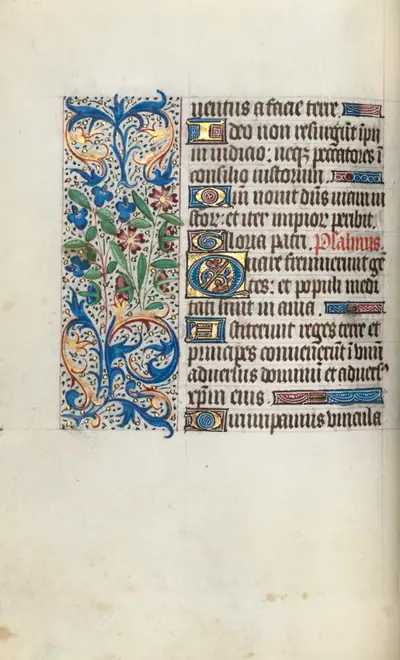 uentus a facie terre.
Ideo non resurgūt ipii
in iudicio: neqꝫ peccatores ī
consilio iustorum.
Qm̄ nouit dn̄s uiam iu
storꝝ: et iter impiorꝝ peribit.
Gloria patri. Psalmus.
Quare fremuerunt gē
tes: et populi medi
tati sunt inania.
Astiterunt reges terre et
principes conuenerūt ī vnū
aduersus dominū et aduersꝰ
xp̄m eius.
Dirumpamus vincula